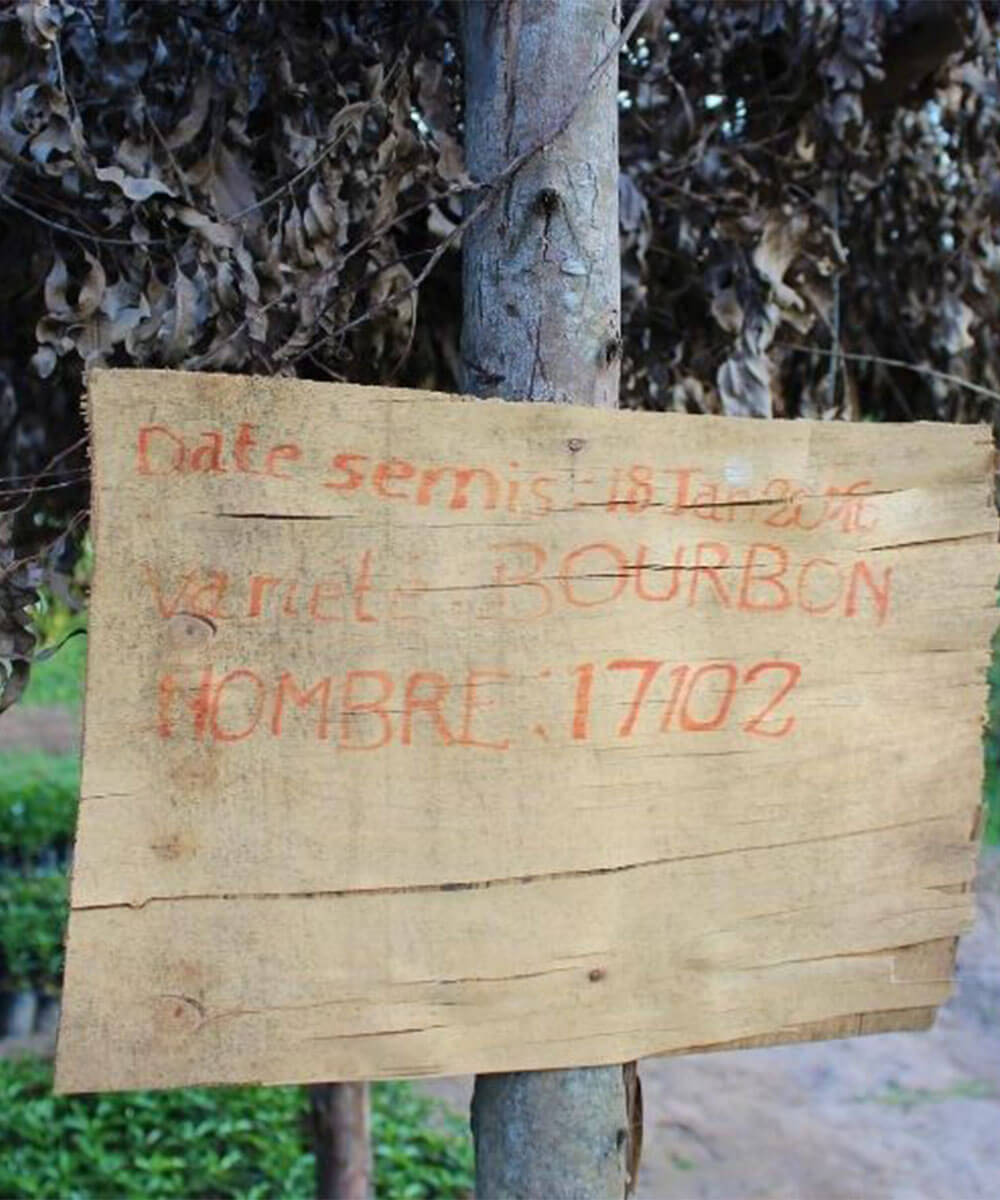 Date semis : 18 Jan 2016
variété : BOURBON
NOMBRE : 17102